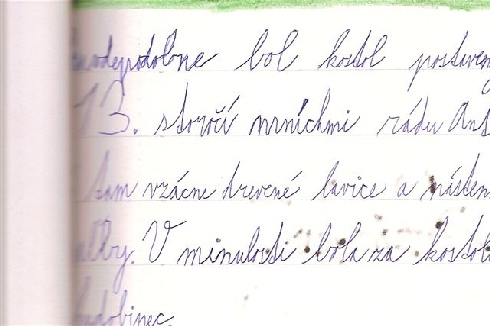 pravdepodobne bol kostol postavený
13. storočí mníchmi rádu Ant
tam vzácne drevené lavice a násten
maľby. V minulosti bola za kostolo
chudobinec.